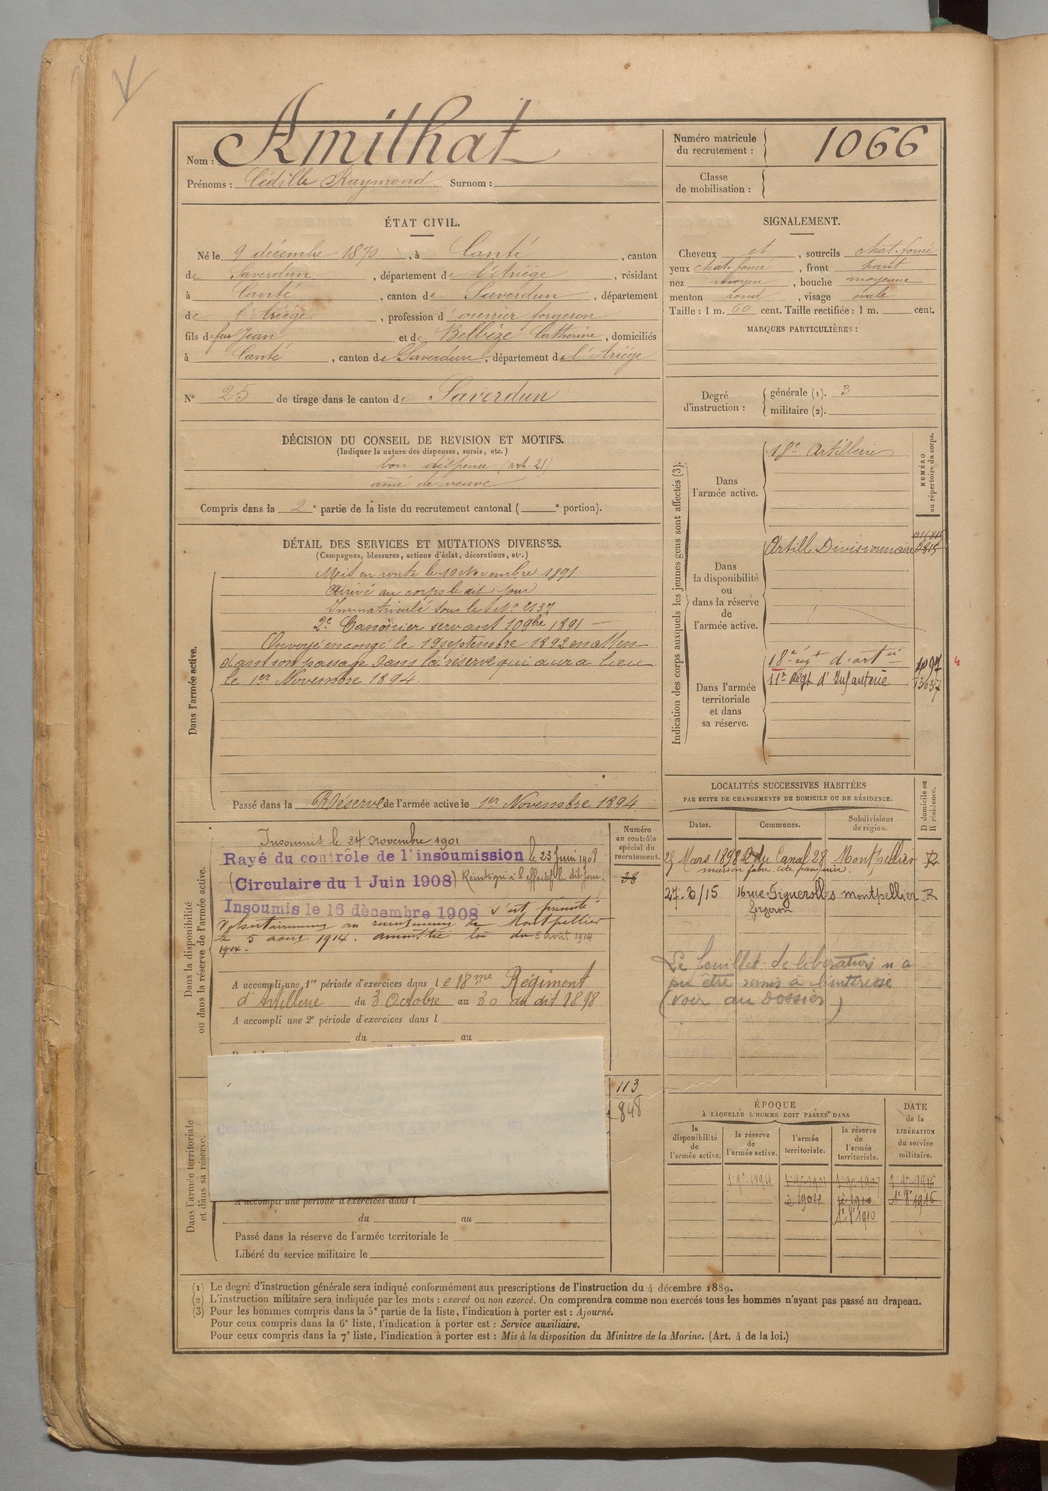 Nom : Amilhat
Prénoms : Cédille Raymond Surnom :
Numéro matricule
du recrutement : 1066
Classe
de mobilisation :
ÉTAT CIVIL.
Né le 9 décembre 1870, à Canté, canton
de Saverdun, département de l'Ariège, résidant
à Canté, canton de Saverdun, département
de l'Ariège, profession d'ouvrier forgeron
fils de feu Jean et de Belbèze Catherine, domiciliés
à Canté, canton de Saverdun, département de l'Ariège
N° 25 de tirage dans le canton de Saverdun
SIGNALEMENT.
Cheveux et, sourcils chat. foncé
yeux chat. foncé, front haut
nez moyen, bouche moyenne
menton rond, visage ovale
Taille : 1 m. 60 cent. Taille rectifiée : 1 m. cent.
MARQUES PARTICULIÈRES :
Degré
d'instruction :
générale (1). 3
militaire (2).
DÉCISION DU CONSEIL DE REVISION ET MOTIFS.
(Indiquer la nature des dispenses, sursis, etc.)
bon dispensé (art. 21)
aîné de veuve
Compris dans la 2e partie de la liste du recrutement cantonal ( e portion).
DÉTAIL DES SERVICES ET MUTATIONS DIVERSES.
(Campagnes, blessures, actions d'éclat, décorations, etc.)
Dans l'armée active.
Mis en route le 10 Novembre 1891
Arrivé au corps le dit jour
Immatriculé sous le N° 2137
2e Canonier servant 10 9bre 1891
Envoyé en congé le 19 septembre 1892 en atten
dant son passage dans la réserve qui aura lieu
le 1er Novembre 1894
Passé dans la Réserve de l'armée active le 1er Novembre 1894
Indication des corps auxquels les jeunes gens sont affectés (3).
NUMÉRO
au répertoire du corps.
Dans
l'armée active.
18e Artillerie
Dans
la disponibilité
ou
dans la réserve
de
l'armée active.
Artill Divisionnaire
Dans l'armée
territoriale
et dans
sa réserve.
18e régt d'artie
11e Régt d'Infanterie
Dans la disponibilité
ou dans la réserve de l'armée active.
Numéro
au contrôle
spécial du
recrutement.
28
Insoumis le 24 novembre 1901
Rayé du contrôle de l'insoumission le 23 Juin 1908
(Circulaire du 1 Juin 1908) Réintégré à l'effectif le dit jour.
Insoumis le 16 décembre 1908 s'est présenté
volontairement au recrutement de Montpellier
le 5 août 1914. amnistié loi du 5 août 1914
1914.
A accompli une 1re période d'exercices dans le 18me Régiment
d'Artillerie du 3 Octobre au 30 du dit 1898
A accompli une 2e période d'exercices dans l
du au
Dans l'armée territoriale
et dans sa réserve.
113
848
A accompli une période d'exercices dans l
du au
Passé dans la réserve de l'armée territoriale le
Libéré du service militaire le
LOCALITÉS SUCCESSIVES HABITÉES
PAR SUITE DE CHANGEMENTS DE DOMICILE OU DE RÉSIDENCE.
D domicile ou
R résidence.
Dates. Communes. Subdivisions
de région.
28 Mars 1898 Q du Canal 28 Montpellier R
maison Fabre
27.3/15 16 rue Figuerolles Montpellier R
forgeron
Le feuillet de libération n'a
pu être remis à l'intéressé
(voir au Dossier)
ÉPOQUE
À LAQUELLE L'HOMME DOIT PASSER DANS
DATE
de la
LIBÉRATION
du service
militaire.
la
disponibilité
de
l'armée active.
la réserve
de
l'armée active.
l'armée
territoriale.
la réserve
de
l'armée
territoriale.
1er 9e 1894
(1) Le degré d'instruction générale sera indiqué conformément aux prescriptions de l'instruction du 4 décembre 1889.
(2) L'instruction militaire sera indiquée par les mots : exercé ou non exercé. On comprendra comme non exercés tous les hommes n'ayant pas passé au drapeau.
(3) Pour les hommes compris dans la 5e partie de la liste, l'indication à porter est : Ajourné.
Pour ceux compris dans la 6e liste, l'indication à porter est : Service auxiliaire.
Pour ceux compris dans la 7e liste, l'indication à porter est : Mis à la disposition du Ministre de la Marine. (Art. 4 de la loi.)